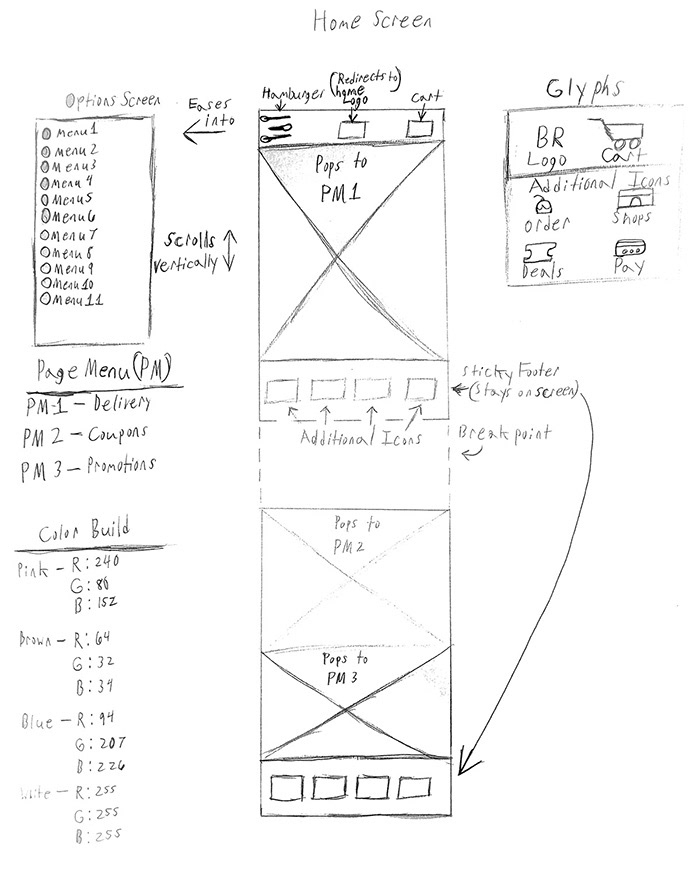 Home Screen
Options Screen
Menu 1
Menu 2
Menu 3
Menu 4
Menu 5
Menu 6
Menu 7
Menu 8
Menu 9
Menu 10
Menu 11
Eases
into
Scrolls
vertically
Hamburger
(Redirects to)
home
Logo
Cart
Pops to
PM1
Glyphs
BR
Logo
Cart
Additional Icons
Order
Shops
Deals
Pay
Page Menu (PM)
PM-1 – Delivery
PM 2 – Coupons
PM 3 – Promotions
Sticky Footer
(Stays on screen)
Additional Icons
Breakpoint
Pops to
PM2
Pops to
PM 3
Color Build
Pink – R: 240
G: 86
B: 152
Brown – R: 64
G: 32
B: 34
Blue – R: 94
G: 207
B: 226
White – R: 255
G: 255
B: 255